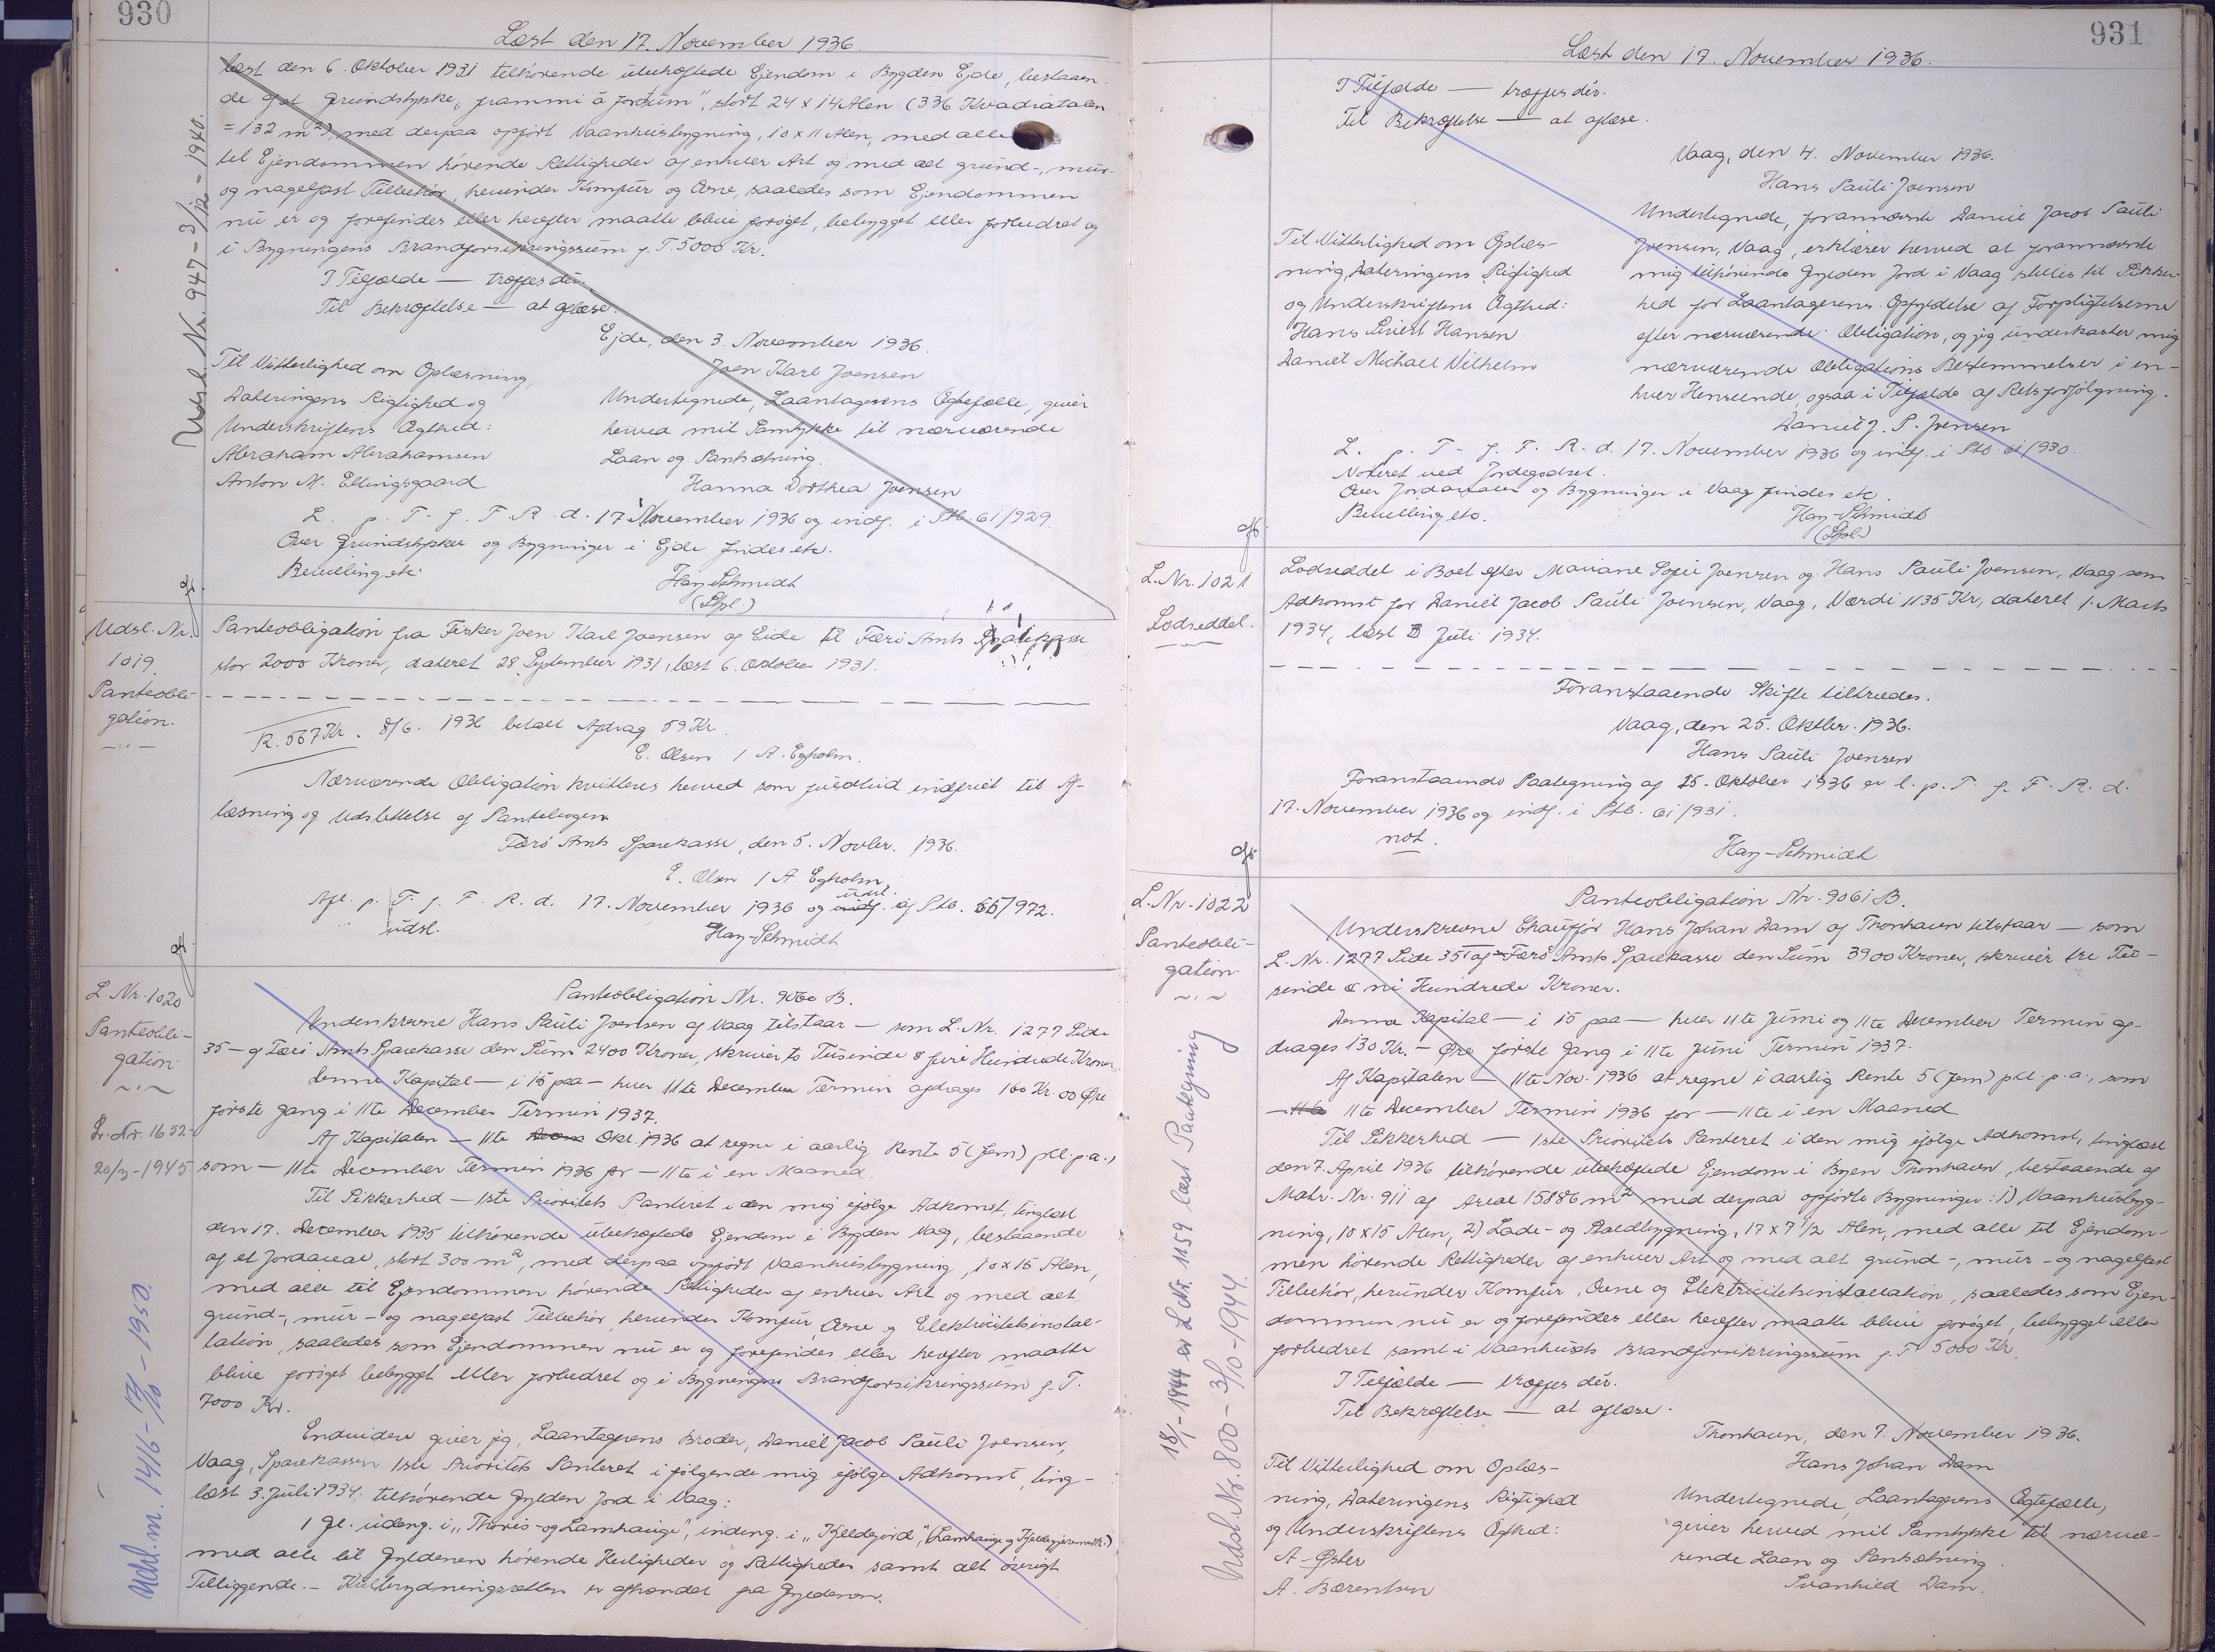 930
Læst den 17. November 1936.
læst den 6. Oktober 1931 tilhørende ubehæftede Ejendom i Bygden Ejde, bestaaen-
de af et Grundstykke „frammi á Jordum", stort 24 x 14 Alen (336 Kvadratalen
= 132 m²), med derpaa opført Vaaningshusbygning, 10 x 11 Alen, med alle
til Ejendommen hørende Rettigheder af enhver Art og med alt grund-, mur-
og nagelfast Tilbehør, herunder Komfur og Ovne, saaledes som Ejendommen
nu er og forefindes eller herefter maatte blive forøget, bebygget eller forbedret og
i Bygningens Brandforsikringssum p. T. 5000 Kr.
I Tilfælde — træffes dér.
Til Bekræftelse — at aflæse.
Ejde, den 3. November 1936.
Joen Karl Joensen
Til Vitterlighed om Oplæsning,
Dateringens Rigtighed og
Underskriftens Ægthed:
Abraham Abrahamsen
Anton M. Ellingsgaard
Undertegnede, Laantagerens Ægtefælle, giver
herved mit Samtykke til nærværende
Laan og Pantsætning.
Hanna Dorthea Joensen
L. p. T. f. F. R. d. 17 November 1936 og indf. i Ptb. 61/929.
Over Grundstykker og Bygninger i Ejde findes etc.
Bevilling etc.
Hay-Schmidt
(Spl.)
Udsl. Nr. 947 - 3/12 - 1940.
Udsl. Nr.
1019.
Panteobli-
gation.
Panteobligation fra Fisker Joen Karl Joensen af Eide til Færø Amts Sparekasse
stor 2000 Kroner, dateret 28 September 1931, læst 6. Oktober 1931.
R. 567 Kr. 8/6. 1936 betalt Afdrag 59 Kr.
E. Olsen / A. Egholm.
Nærværende Obligation kvitteres herved som fuldtud indfriet til Af-
læsning og Udslettelse af Pantebogen.
Færø Amts Sparekasse, den 5. Novbr. 1936.
E. Olsen / A Egholm
Afl. p. T. f. F. R. d. 17. November 1936 og indf. udsl. af Ptb. 55/972.
udsl.
Hay-Schmidt
L. Nr. 1020
Panteobli-
gation
L. Nr. 1652-
20/3-1945
Udsl. m. 1416 - 17/10 - 1950.
Panteobligation Nr. 9060 B.
Underskrevne Hans Pauli Joensen af Vaag tilstaar — som L. Nr. 1277 Side
35 — af Færø Amts Sparekasse den Sum 2400 Kroner, skriver to Tusinde & fire Hundrede Kroner.
Denne Kapital — i 15 paa — hver 11te December Termin afdrages 160 Kr. 00 Øre
første Gang i 11te December Termin 1937.
Af Kapitalen — 11te Okt. 1936 at regne i aarlig Rente 5 (fem) pCt. p.a.,
som — 11te December Termin 1936 for — 11te i en Maaned.
Til Sikkerhed — 1ste Prioritets Panteret i den mig ifølge Adkomst, tinglæst
den 17. December 1935 tilhørende ubehæftede Ejendom i Bygden Vag, bestaaende
af et Jordareal, stort 300 m², med derpaa opført Vaanhusbygning, 10 x 15 Alen,
med alle til Ejendommen hørende Rettigheder af enhver Art og med alt
grund-, mur- og nagelfast Tilbehør herunder Komfur, Ovne og Elektricitetsinstal-
lation, saaledes som Ejendommen nu er og forefindes eller herefter maatte
blive forøget bebygget eller forbedret og i Bygningens Brandforsikringssum p. T.
7000 Kr.
Endvidere giver jeg, Laantagerens Broder, Daniel Jacob Pauli Joensen,
Vaag, Sparekassen 1ste Prioritets Panteret i følgende mig ifølge Adkomst, ting-
læst 3. Juli 1934, tilhørende Gylden Jord i Vaag:
1 Gl. udeng. i „Thoris- og Lamhauge", indeng. i „Kjeldegjord",
med alle til Gyldenen hørende Herligheder og Rettigheder samt alt øvrigt
Tilliggende. — Kulbrydningsretten er afhændet fra Gyldenen.
931
Læst den 17. November 1936.
I Tilfælde — træffes dér.
Til Bekræftelse — at aflæse.
Vaag, den 4. November 1936.
Hans Pauli Joensen
Til Vitterlighed om Oplæs-
ning, Dateringens Rigtighed
og Underskriftens Ægthed:
Hans Sivert Hansen
Daniel Michael Vilhelm
Undertegnede, forannævnte Daniel Jacob Pauli
Joensen, Vaag, erklærer herved at forannævnte
mig tilhørende Gylden Jord i Vaag stilles til Sikker-
hed for Laantagerens Opfyldelse af Forpligtelserne
efter nærværende Obligation, og jeg underkaster mig
nærværende Obligations Bestemmelser i en-
hver Henseende, ogsaa i Tilfælde af Retsforfølgning.
Daniel J. P. Joensen
L. p. T. f. F. R. d. 17. November 1936 og indf. i Ptb. 61/930.
Noteret ved Jordegodset.
Over Jordarealer og Bygninger i Vaag findes etc.
Bevilling etc.
Hay-Schmidt
(Spl.)
L. Nr. 1021
Lodseddel.
Lodseddel i Boet efter Mariane Sofie Joensen og Hans Pauli Joensen, Vaag som
Adkomst for Daniel Jacob Pauli Joensen, Vaag, Værdi 1135 Kr, dateret 1. Marts
1934, læst 3 Juli 1934.
Foranstaaende Skifte tiltrædes.
Vaag, den 25. Oktbr. 1936.
Hans Pauli Joensen
Foranstaaende Paategning af 25. Oktober 1936 er l. p. T. f. F. R. d.
17. November 1936 og indf. i Ptb. 61/931.
not.
Hay-Schmidt
L. Nr. 1022
Panteobli-
gation
18/1-1944 er L Nr. 1159 læst Paategning
Udsl. Nr. 800 - 3/10-1944.
Panteobligation Nr. 9061 B.
Underskrevne Chauffør Hans Johan Dam af Thorshavn tilstaar — som
L. Nr. 1277 Side 35 — af Færø Amts Sparekasse den Sum 3900 Kroner, skriver tre Tu-
sinde & ni Hundrede Kroner.
Denne Kapital — i 15 paa — hver 11te Juni og 11te December Termin af-
drages 130 Kr. — Øre første Gang i 11te Juni Termin 1937.
Af Kapitalen — 11te Nov. 1936 at regne i aarlig Rente 5 (fem) pCt. p.a., som
— 11te 11te December Termin 1936 for — 11te i en Maaned
Til Sikkerhed — 1ste Prioritets Panteret i den mig ifølge Adkomst, tinglæst
den 7. April 1936 tilhørende ubehæftede Ejendom i Byen Thorshavn, bestaaende af
Matr. Nr. 911 af Areal 15886 m² med derpaa opførte Bygninger: 1) Vaanhusbyg-
ning, 10 x 15 Alen, 2) Lade- og Staldbygning, 17 x 7 1/2 Alen, med alle til Ejendom-
men hørende Rettigheder af enhver Art og med alt grund-, mur- og nagelfast
Tilbehør, herunder Komfur, Ovne og Elektricitetsinstallation, saaledes som Ejen-
dommen nu er og forefindes eller herefter maatte blive forøget, bebygget eller
forbedret samt i Vaanhusets Brandforsikringssum p. T. 5000 Kr.
I Tilfælde — træffes dér.
Til Bekræftelse — at aflæse.
Thorshavn, den 7. November 1936.
Hans Johan Dam
Til Vitterlighed om Oplæs-
ning, Dateringens Rigtighed
og Underskriftens Ægthed:
A. Øster
A. Bærentsen
Undertegnede, Laantagerens Ægtefælle,
giver herved mit Samtykke til nærvæ-
rende Laan og Pantsætning.
Svanhild Dam.